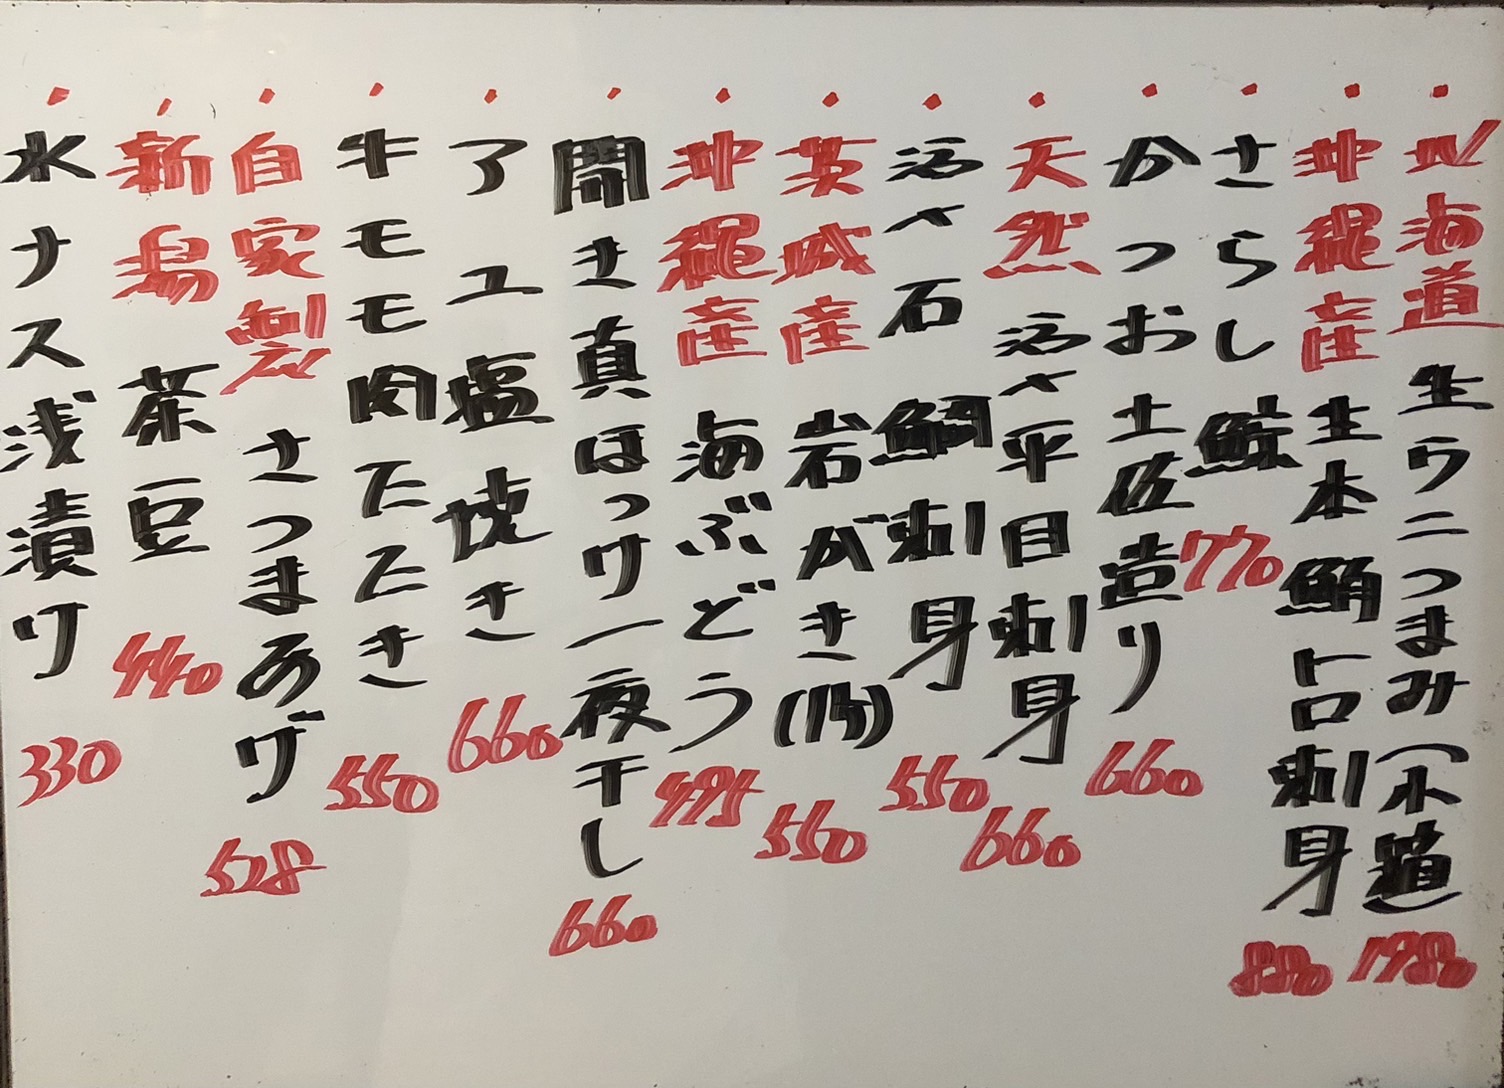 ・北海道 生ウニつまみ(木箱) 1980
・沖縄産 生本鮪トロ刺身 880
・さらし鯨 770
・かつお土佐造り 660
・天然 活〆平目刺身 660
・活〆石鯛刺身 550
・茨城産 岩がき(1ヶ) 550
・沖縄産 海ぶどう 495
・開き真ほっけ一夜干し 660
・アユ塩焼き 660
・牛モモ肉たたき 550
・自家製 さつまあげ 528
・新潟 茶豆 440
・水ナス浅漬け 330